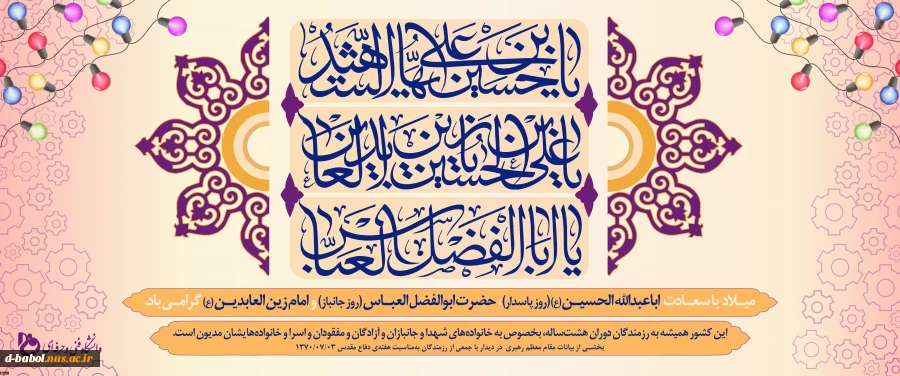 یا حسین بن علی ایها الشهید
یا علی بن الحسین یا زین العابدین
یا اباالفضل العباس
میلاد باسعادت اباعبدالله الحسین(ع)(روز پاسدار) حضرت ابوالفضل العباس(روز جانباز) و امام زین العابدین(ع) گرامی باد.
این کشور همیشه به رزمندگان دوران هشت‌ساله، بخصوص به خانواده‌های شهدا و جانبازان و آزادگان و مفقودان و اسرا و خانواده‌هایشان مدیون است.
بخشی از بیانات مقام معظم رهبری در دیدار با جمعی از رزمندگان به‌مناسبت هفته‌ی دفاع مقدس ۱۳۷۰/۰۷/۰۳
دانشگاه فنی و حرفه‌ای
d-babol.nus.ac.ir